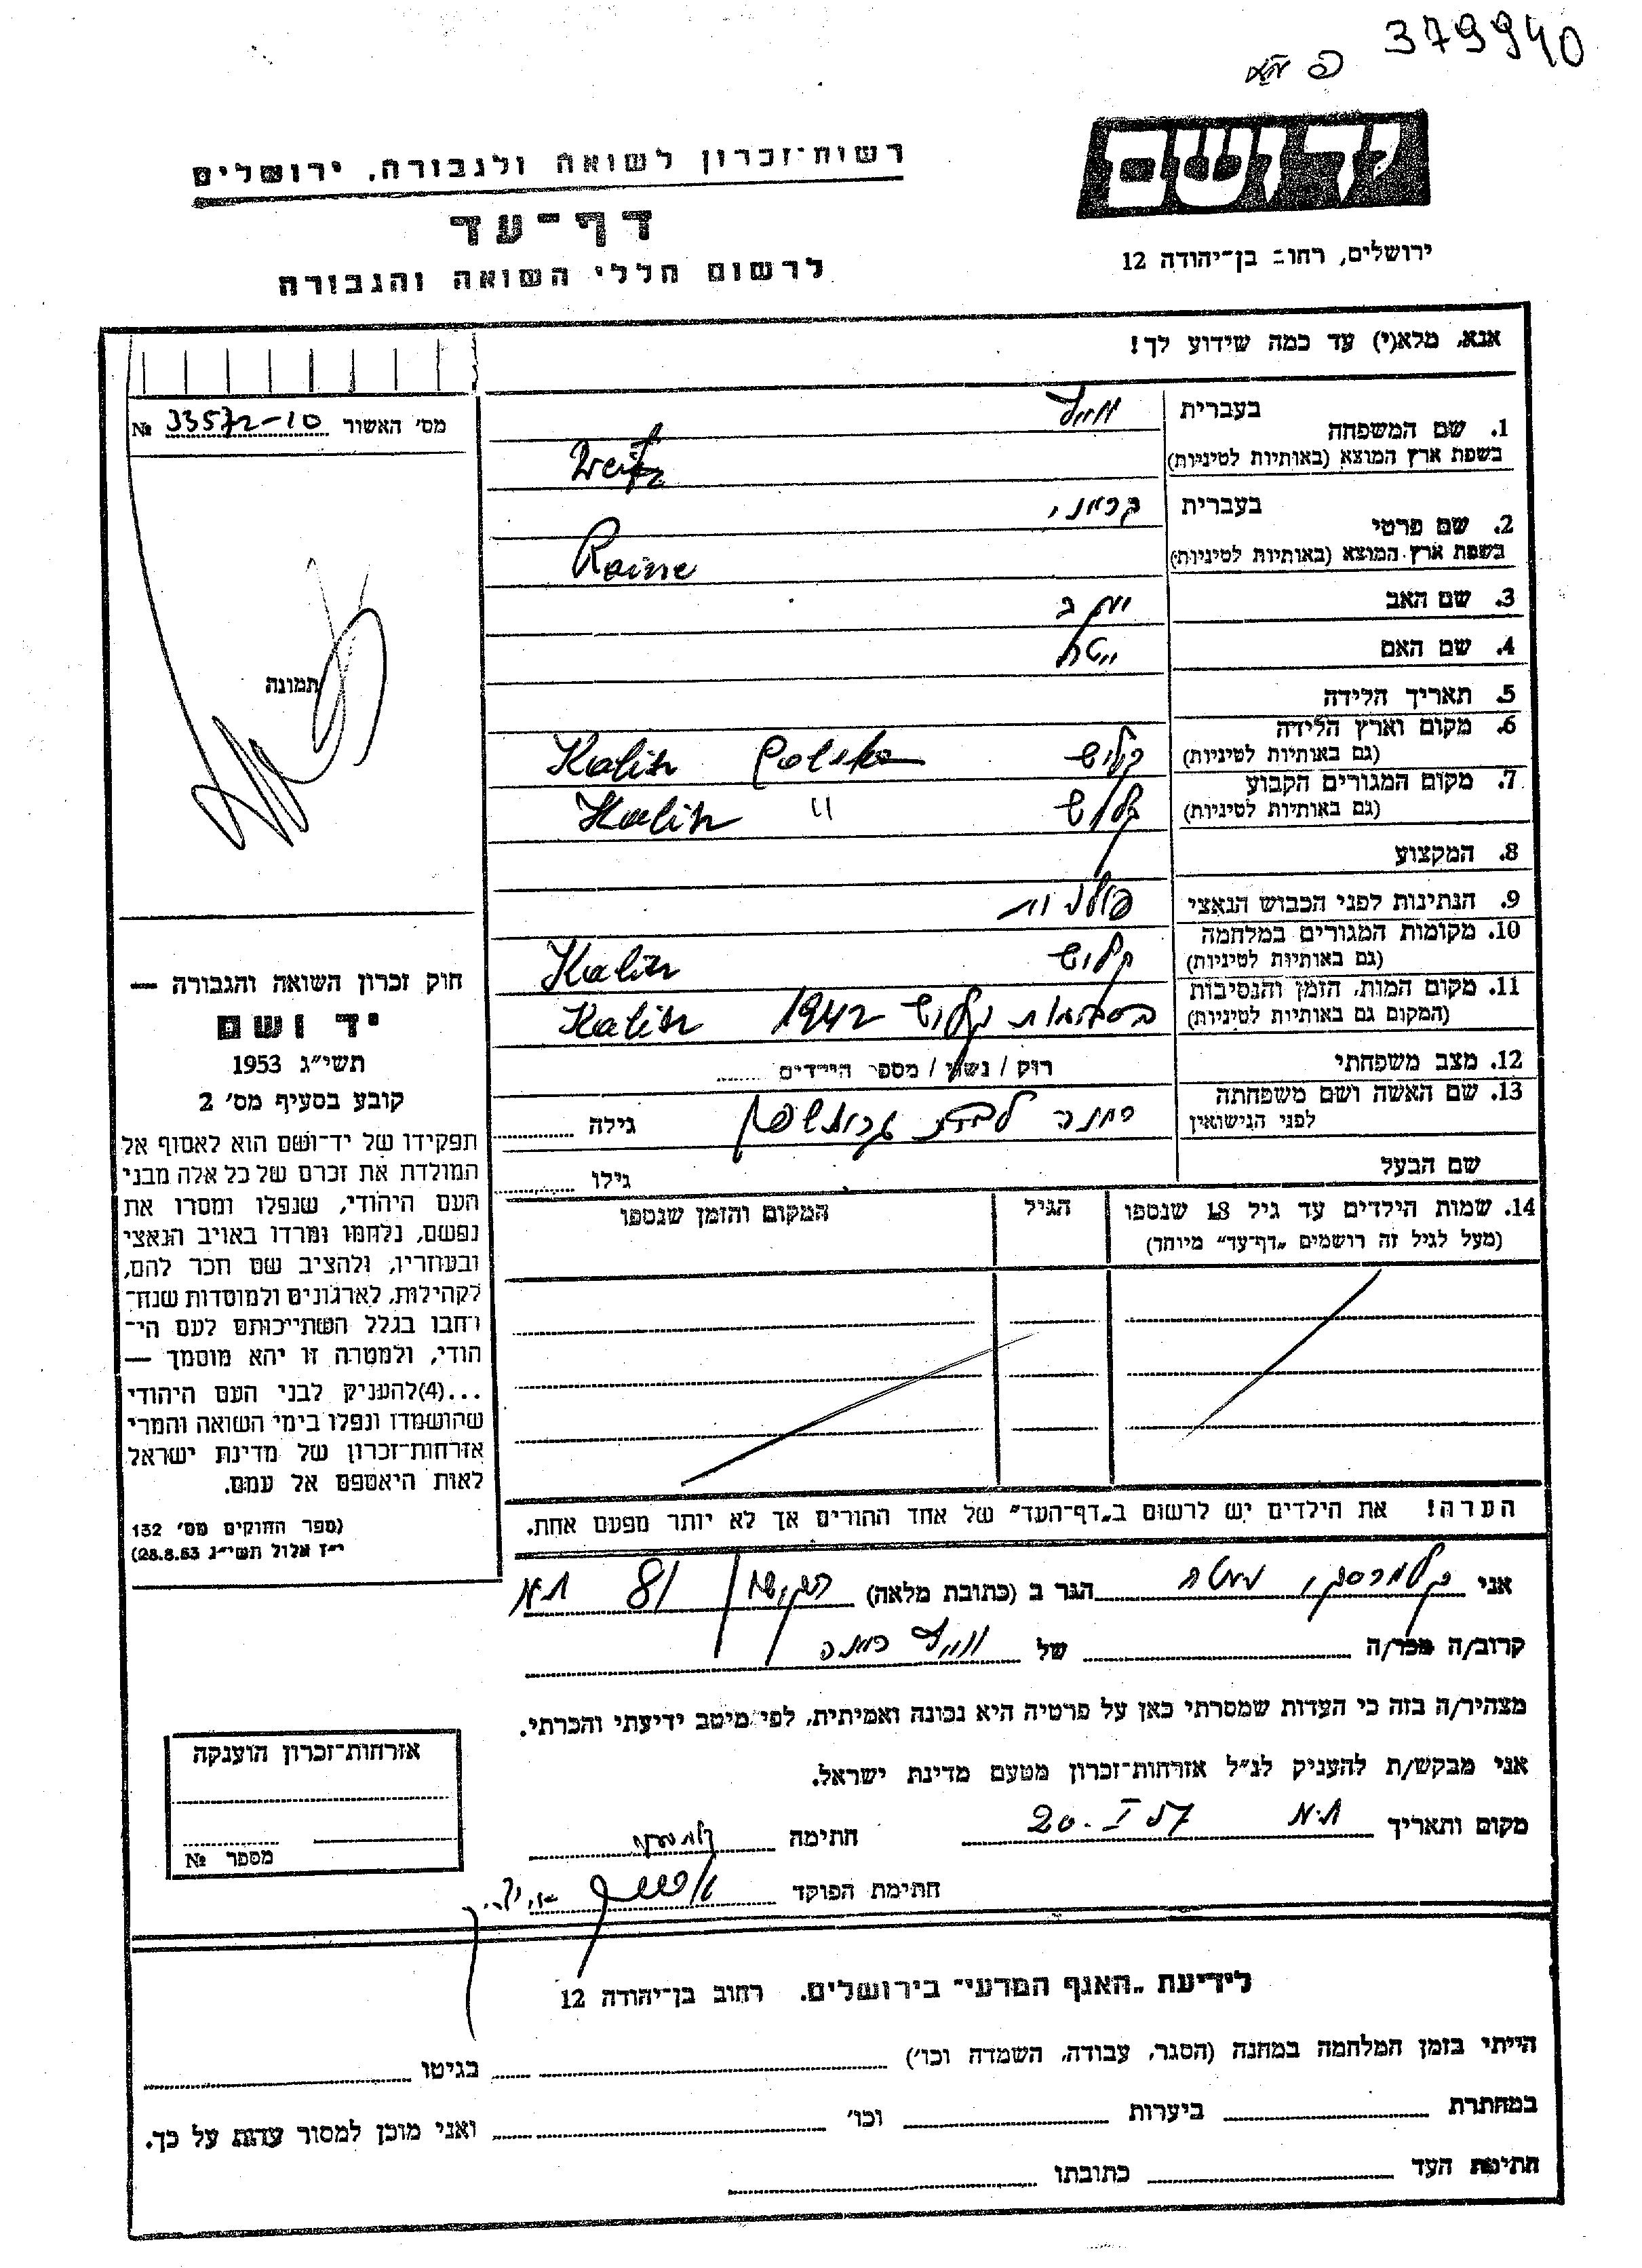 379940
יד ושם
ירושלים, רחוב בן־יהודה 12
רשות־זכרון לשואה ולגבורה, ירושלים
דף־עד
לרשום חללי השואה והגבורה
אנא, מלא(י) עד כמה שידוע לך!
מס' האשור 33572-10 №
תמונה
1. שם המשפחה
בעברית
בשפת ארץ המוצא (באותיות לטיניות)
2. שם פרטי
בעברית
בשפת ארץ המוצא (באותיות לטיניות)
3. שם האב יעקב
4. שם האם
5. תאריך הלידה
6. מקום וארץ הלידה
(גם באותיות לטיניות) קליש Kalisz Polska
7. מקום המגורים הקבוע
(גם באותיות לטיניות) קליש Kalisz "
8. המקצוע
9. הנתינות לפני הכבוש הנאצי פולנית
10. מקומות המגורים במלחמה
(גם באותיות לטיניות) קליש Kalisz
11. מקום המות, הזמן והנסיבות
(המקום גם באותיות לטיניות) קליש 1942 Kalisz
12. מצב משפחתי רוק / נשוי / מספר הילדים
13. שם האשה ושם משפחתה
לפני הנישואין גילה
שם הבעל גילו
14. שמות הילדים עד גיל 18 שנספו הגיל המקום והזמן שנספו
(מעל לגיל זה רושמים „דף־עד" מיוחד)
הערה! את הילדים יש לרשום ב„דף־העד" של אחד ההורים אך לא יותר מפעם אחת.
חוק זכרון השואה והגבורה —
יד ושם
תשי״ג 1953
קובע בסעיף מס' 2
תפקידו של יד־ושם הוא לאסוף אל
המולדת את זכרם של כל אלה מבני
העם היהודי, שנפלו ומסרו את
נפשם, נלחמו ומרדו באויב הנאצי
ובעוזריו, ולהציב שם וזכר להם,
לקהילות, לארגונים ולמוסדות שנח־
רבו בגלל השתייכותם לעם הי־
הודי, ולמטרה זו יהא מוסמך —
...(4) להעניק לבני העם היהודי
שהושמדו ונפלו בימי השואה והמרי
אזרחות־זכרון של מדינת ישראל
לאות היאספם אל עמם.
(ספר החוקים מס' 132
י״ז אלול תשי״ג 28.8.53)
אני הגר ב (כתובת מלאה) 81 ת.א
קרוב/ה מכר/ה של
מצהיר/ה בזה כי העדות שמסרתי כאן על פרטיה היא נכונה ואמיתית, לפי מיטב ידיעתי והכרתי.
אני מבקש/ת להעניק לנ״ל אזרחות־זכרון מטעם מדינת ישראל.
מקום ותאריך ת.א 20.I.57 חתימה
חתימת הפוקד
אזרחות־זכרון הוענקה
מספר №
לידיעת „האגף המדעי" בירושלים. רחוב בן־יהודה 12
הייתי בזמן המלחמה במחנה (הסגר, עבודה, השמדה וכו') בגיטו
במחתרת ביערות וכו' ואני מוכן למסור עדות על כך.
חתימת העד כתובתו